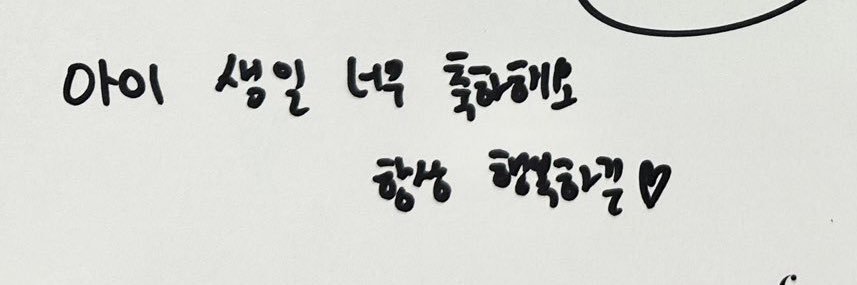 아이 생일 너무 축하해요
항상 행복하길♡